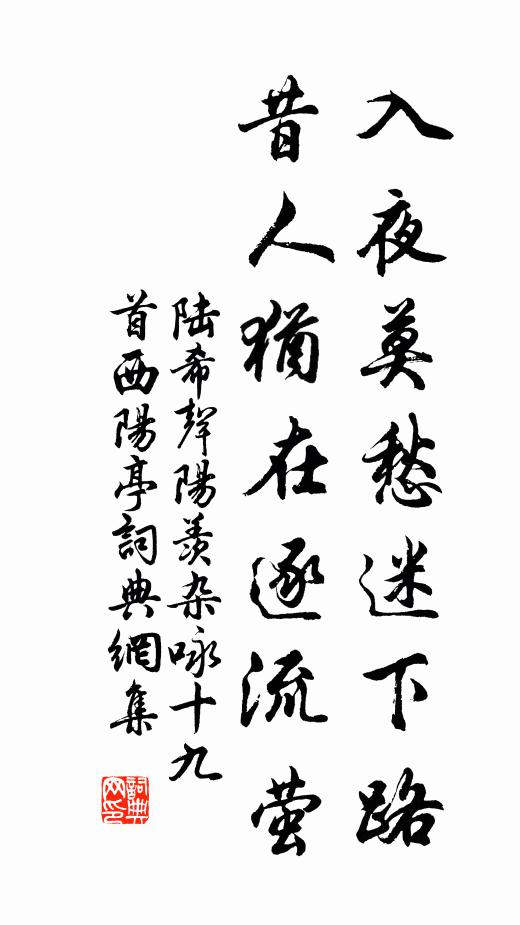 入夜莫愁迷下路
昔人猶在逐流萤
陆希聲陽羨杂咏十九
首西陽亭詞典網集
詞典
网印